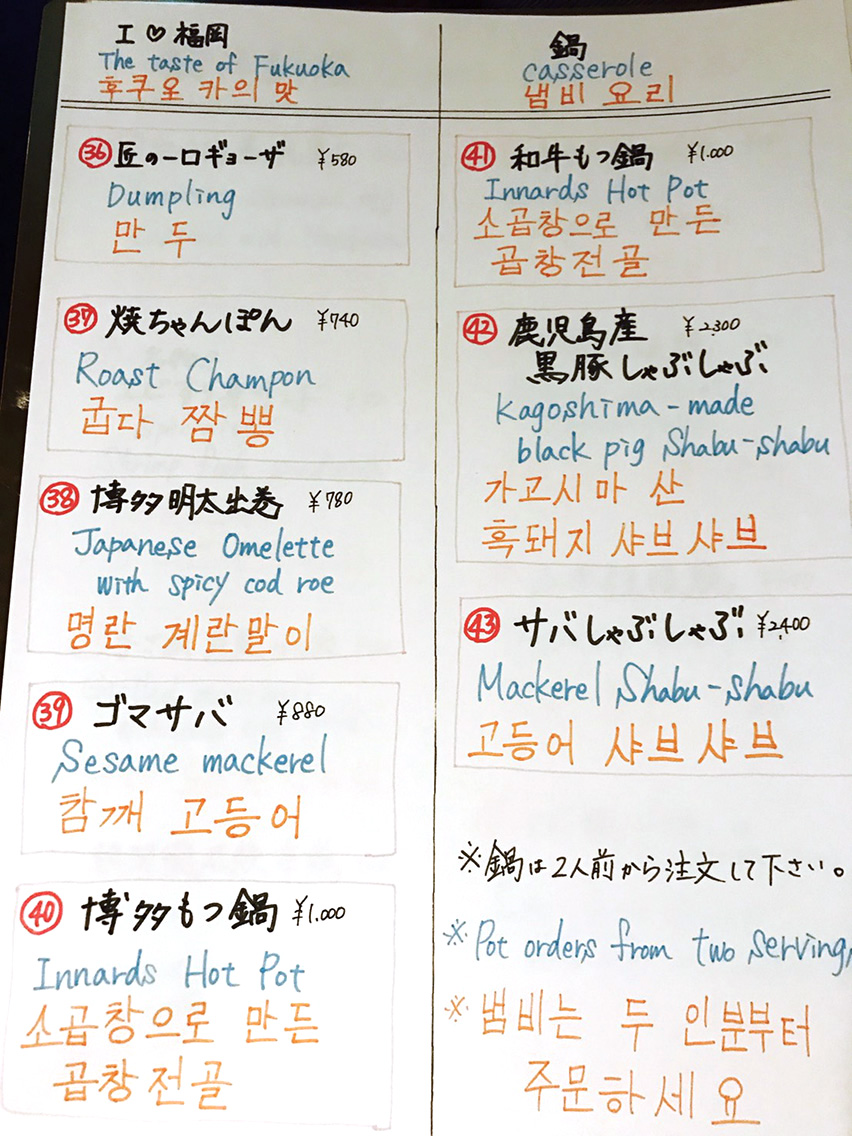 I ♡ 福岡
The taste of Fukuoka
후쿠오카의 맛
㊱ 匠の一口ギョーザ ¥580
Dumpling
만두
㊲ 焼ちゃんぽん ¥740
Roast Champon
굽다 짬뽕
㊳ 博多明太出巻 ¥780
Japanese Omelette
with spicy cod roe
명란 계란말이
㊴ ゴマサバ ¥880
Sesame mackerel
참깨 고등어
㊵ 博多もつ鍋 ¥1.000
Innards Hot Pot
소곱창으로 만든
곱창전골
鍋
casserole
냄비 요리
㊶ 和牛もつ鍋 ¥1.000
Innards Hot Pot
소곱창으로 만든
곱창전골
㊷ 鹿児島産 ¥2.300
黒豚しゃぶしゃぶ
Kagoshima-made
black pig Shabu-shabu
가고시마 산
흑돼지 샤브샤브
㊸ サバしゃぶしゃぶ ¥2,400
Mackerel Shabu-shabu
고등어 샤브샤브
※鍋は2人前から注文して下さい。
※Pot orders from two serving,
※냄비는 두 인분부터
주문하세요